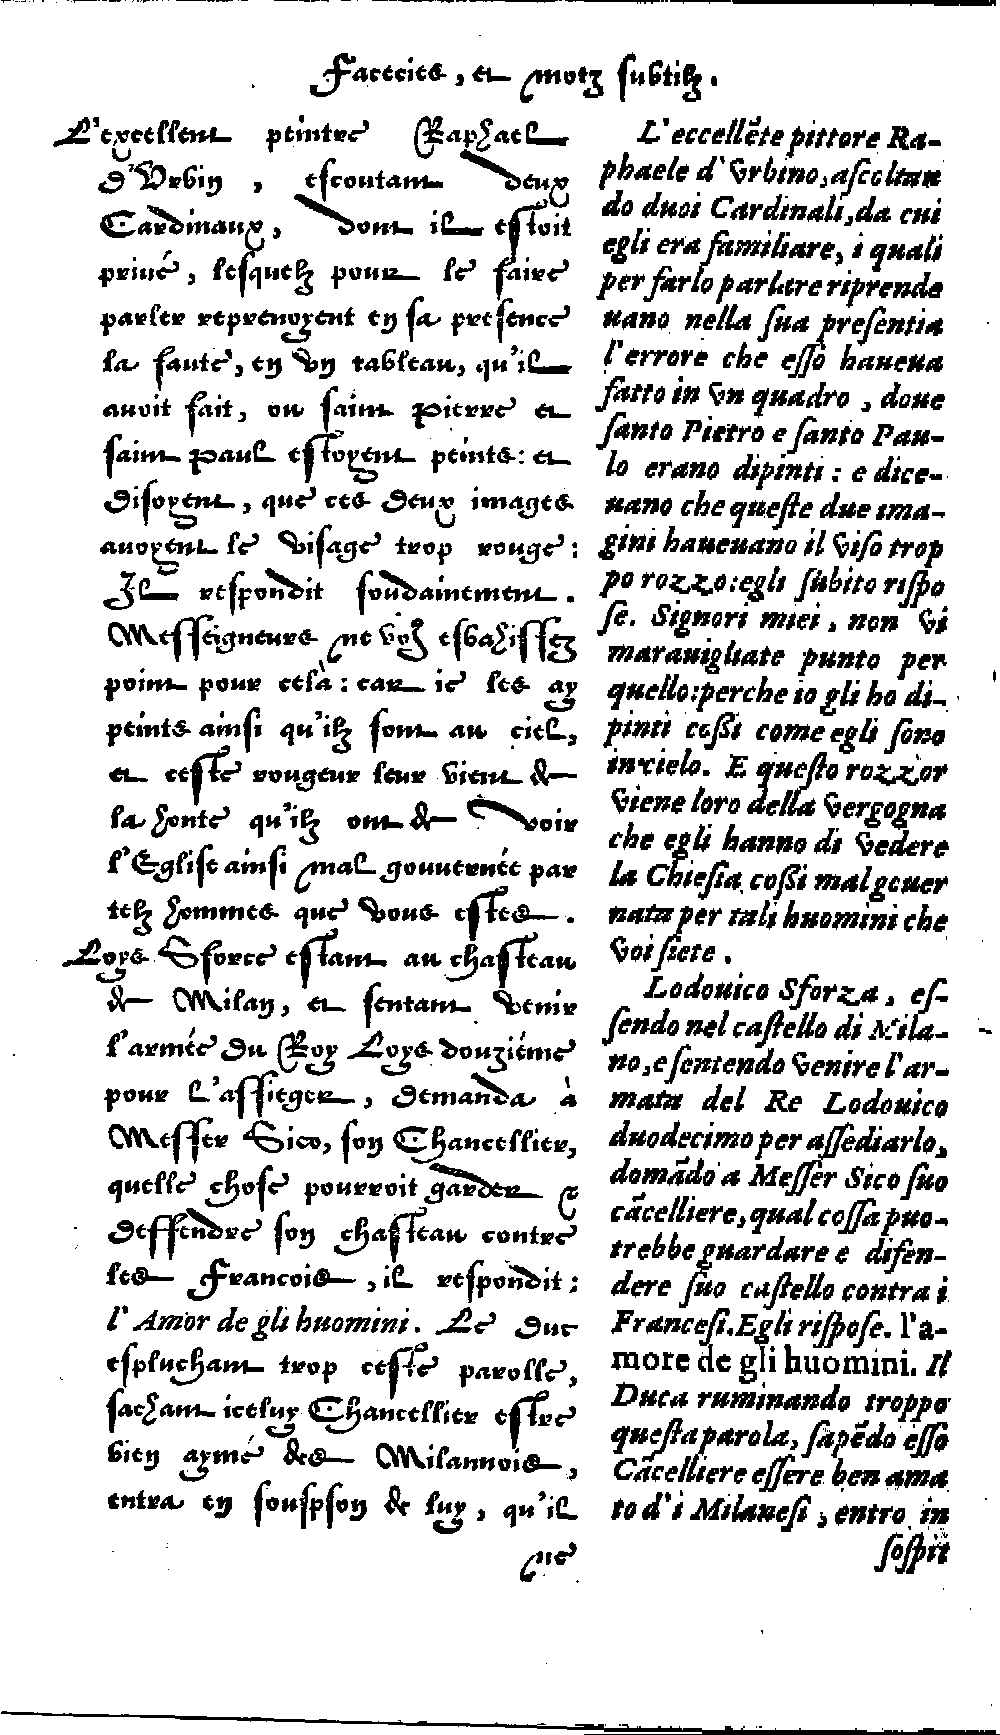 Facecies, et motz subtilz.
L'excellent peintre Raphael
d'Vrbin, escoutant deux
Cardinaux, dont il estoit
priué, lesquelz pour le faire
parler reprenoyent en sa presence
la faute, en vn tableau, qu'il
auoit fait, ou saint Pierre et
saint Paul estoyent peints: et
disoyent, que ces deux images
auoyent le visage trop rouge:
Il respondit soudainement.
Messeigneurs ne vous esbahissez
point pour cela: car ie les ay
peints ainsi qu'ilz sont au ciel,
et ceste rougeur leur vient de
la honte qu'ilz ont de voir
l'Eglise ainsi mal gouuernée par
telz hommes que vous estes.
Loys Sforce estant au chasteau
de Milan, et sentant venir
l'armée du Roy Loys douziéme
pour l'assieger, demanda à
Messer Sico, son Chancellier,
quelle chose pourroit garder &
deffendre son chasteau contre
les Francois, il respondit:
l'Amor de gli huomini. Le Duc
espluchant trop ceste parolle,
sachant iceluy Chancellier estre
bien aymé des Milannois,
entra en souspson de luy, qu'il
ne
L'eccellẽte pittore Ra-
phaele d'Vrbino, ascoltan
do duoi Cardinali, da cui
egli era familiare, i quali
per farlo parlare riprende
uano nella sua presentia
l'errore che esso haueua
fatto in vn quadro, doue
santo Pietro e santo Pau-
lo erano dipinti: e dice-
uano che queste due ima-
gini haueuano il viso trop
po rozzo: egli subito rispo
se. Signori miei, non vi
marauigliate punto per
quello: perche io gli ho di-
pinti cossi come egli sono
in cielo. E questo rozzor
viene loro della vergogna
che egli hanno di vedere
la Chiesia cossi mal gouer
nata per tali huomini che
voi siete.
Lodouico Sforza, es-
sendo nel castello di Mila-
no, e sentendo venire l'ar-
mata del Re Lodouico
duodecimo per assediarlo,
domãdo a Messer Sico suo
cãcelliere, qual cossa puo-
trebbe guardare e difen-
dere suo castello contra i
Francesi. Egli rispose. l'a-
more de gli huomini. Il
Duca ruminando troppo
questa parola, sapẽdo esso
Cãcelliere essere ben ama
to d'i Milanesi, entro in
sospit